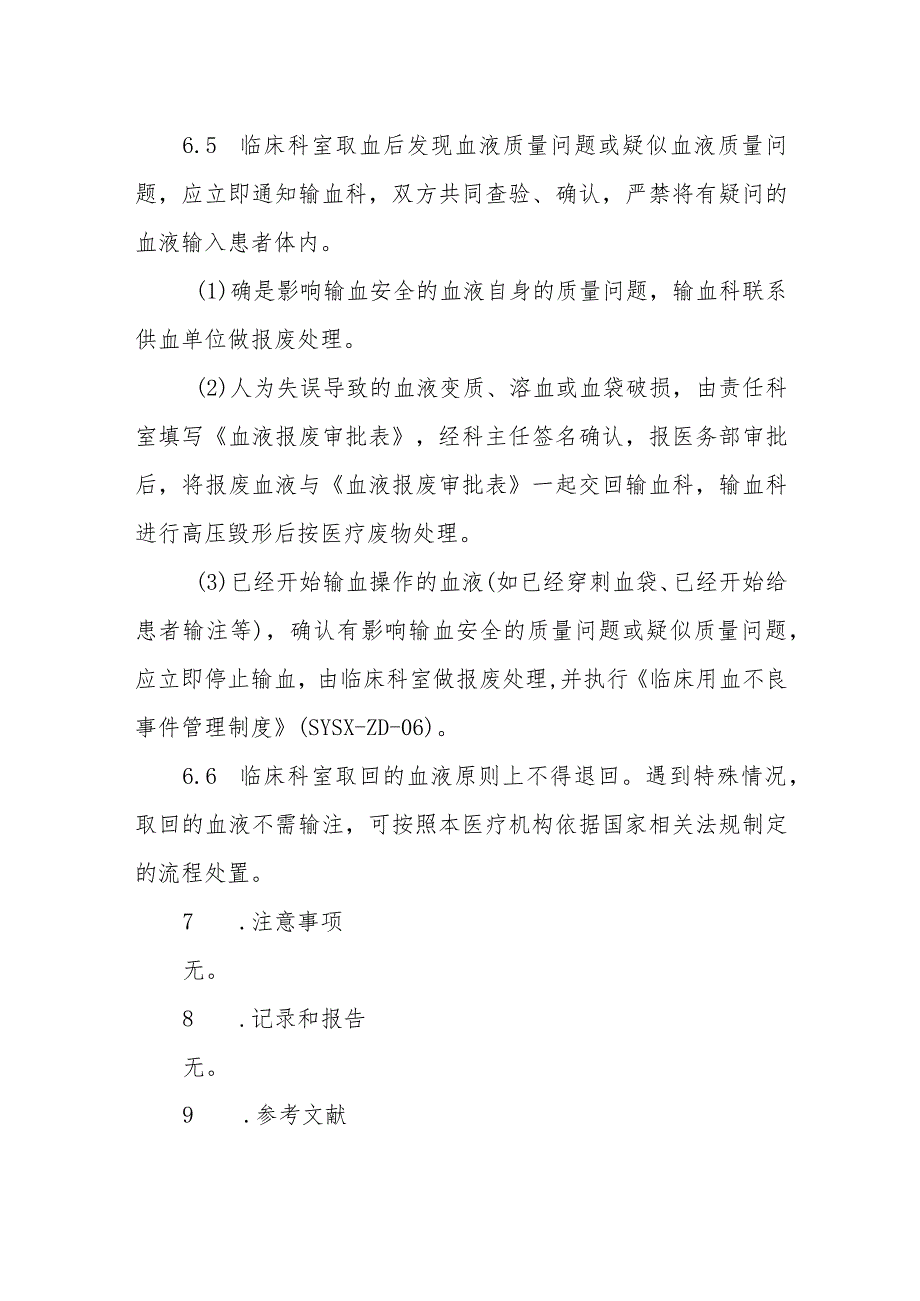 6.5 临床科室取血后发现血液质量问题或疑似血液质量问
题，应立即通知输血科，双方共同查验、确认，严禁将有疑问的
血液输入患者体内。
(1)确是影响输血安全的血液自身的质量问题，输血科联系
供血单位做报废处理。
(2)人为失误导致的血液变质、溶血或血袋破损，由责任科
室填写《血液报废审批表》，经科主任签名确认，报医务部审批
后，将报废血液与《血液报废审批表》一起交回输血科，输血科
进行高压毁形后按医疗废物处理。
(3)已经开始输血操作的血液(如已经穿刺血袋、已经开始给
患者输注等)，确认有影响输血安全的质量问题或疑似质量问题，
应立即停止输血，由临床科室做报废处理,并执行《临床用血不良
事件管理制度》(SYSX-ZD-06)。
6.6 临床科室取回的血液原则上不得退回。遇到特殊情况，
取回的血液不需输注，可按照本医疗机构依据国家相关法规制定
的流程处置。
7 .注意事项
无。
8 .记录和报告
无。
9 .参考文献